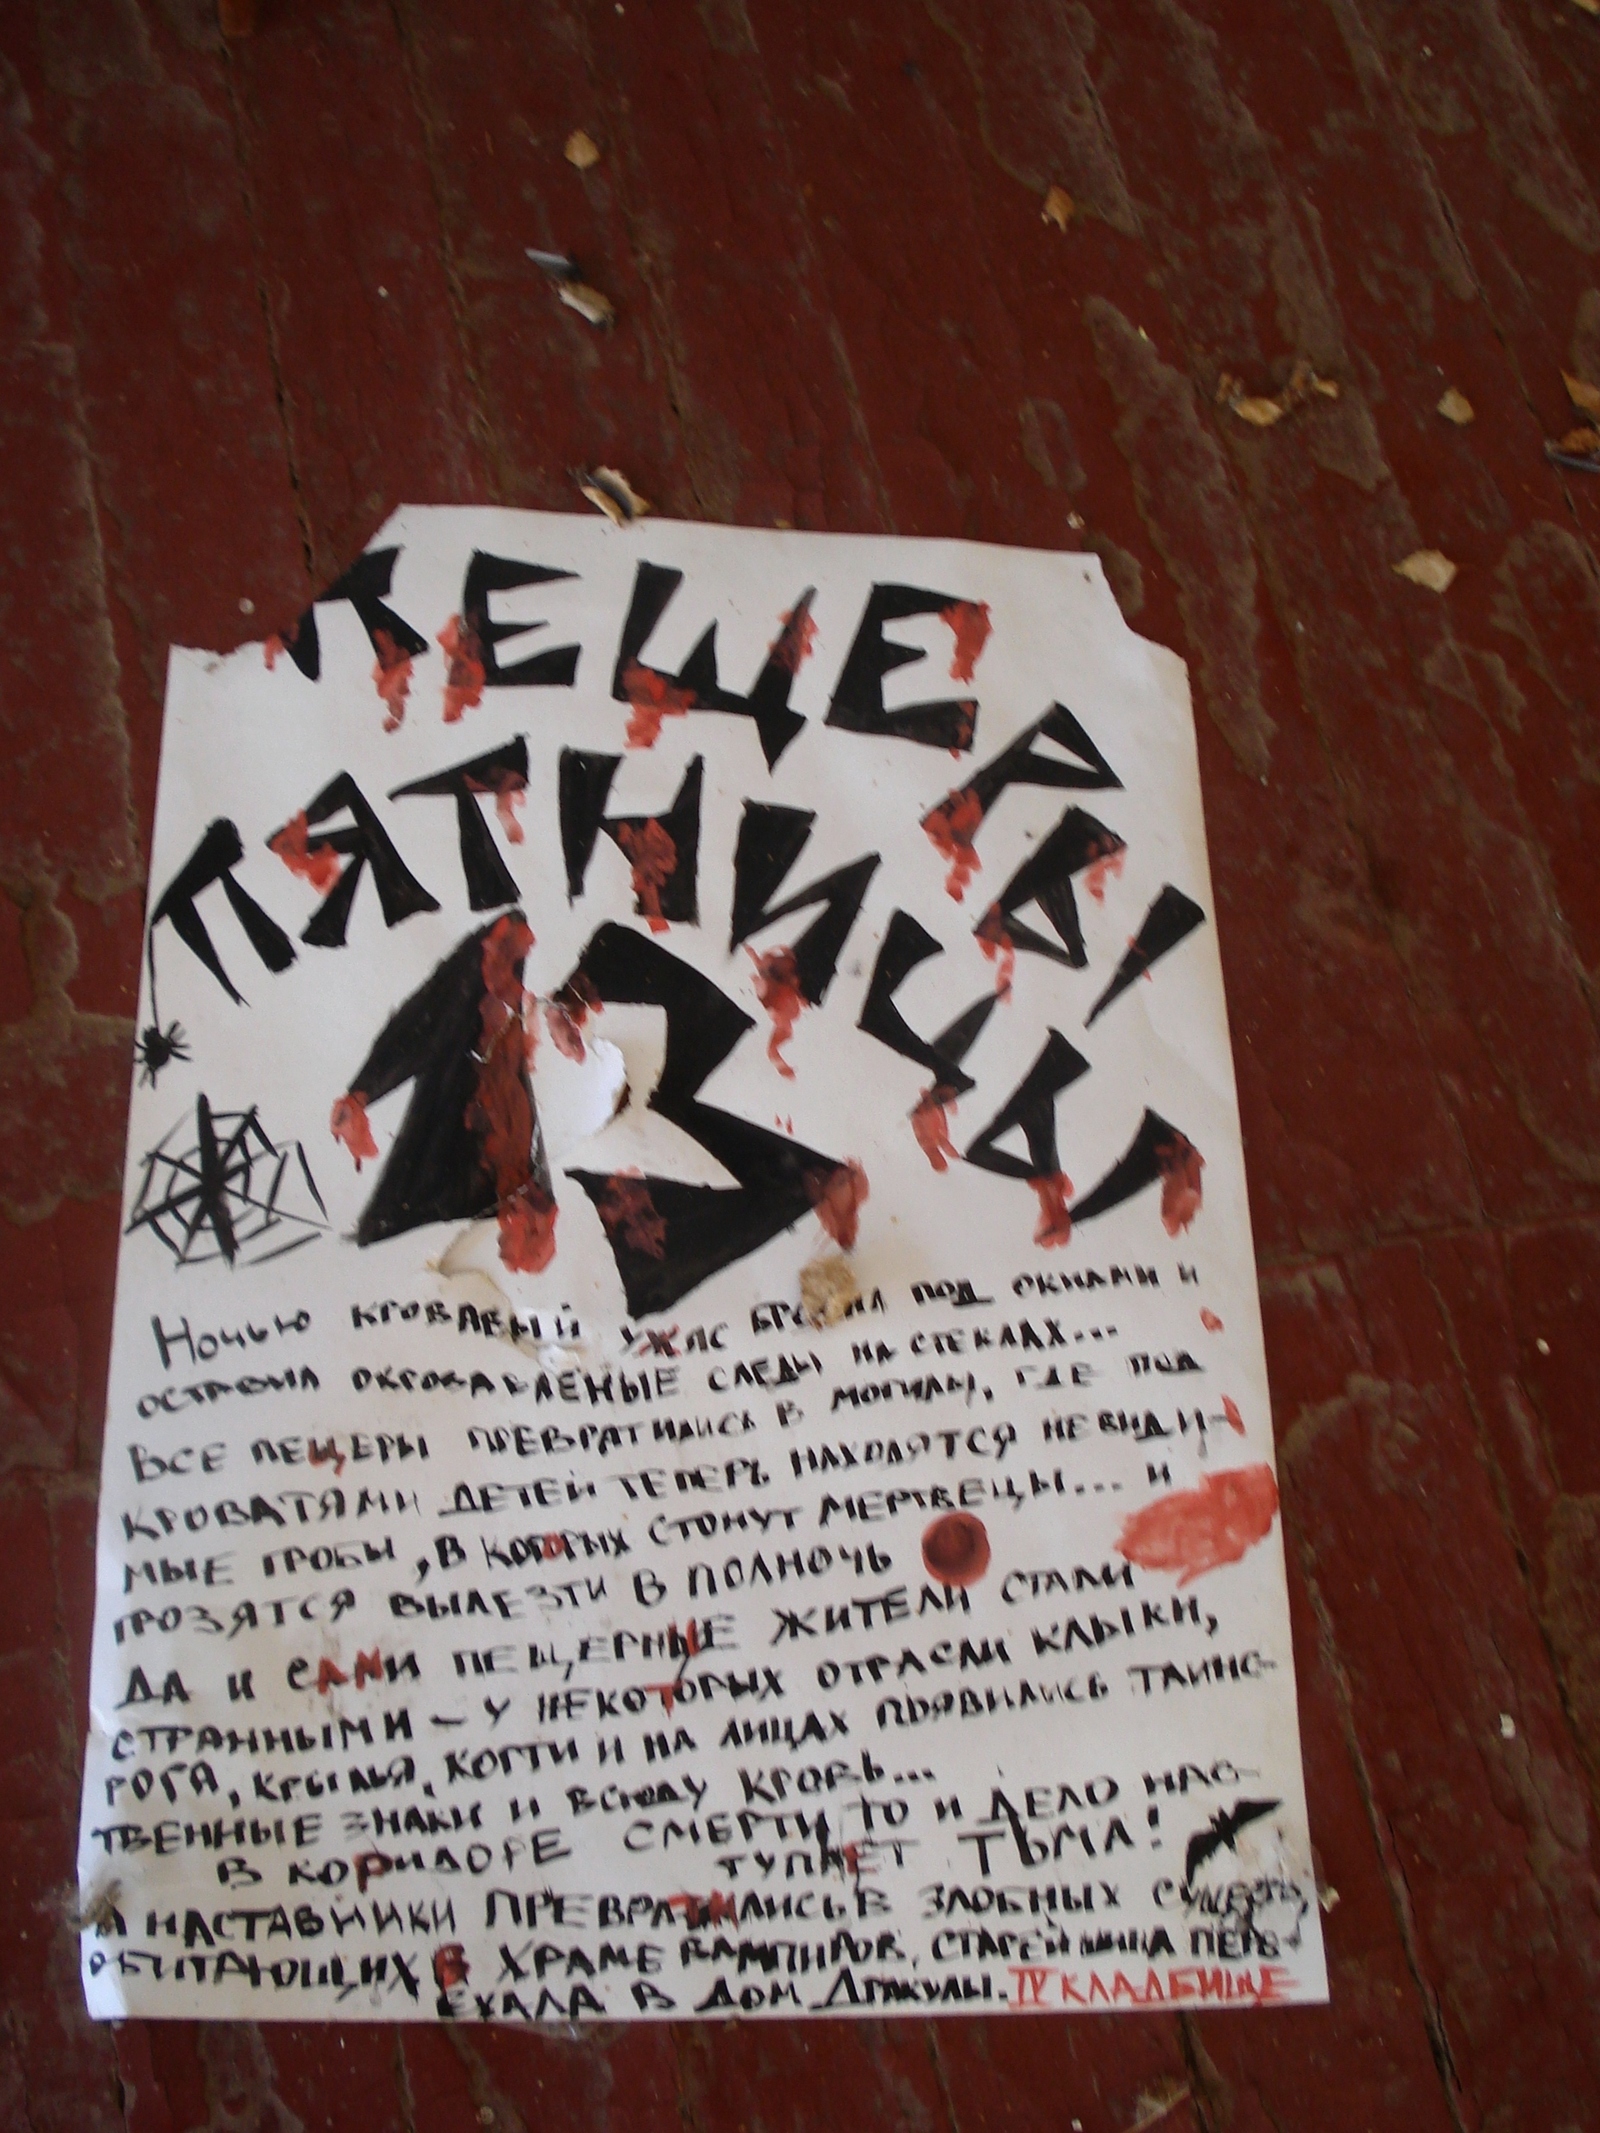 ПЕЩЕРЫ
ПЯТНИЦЫ,
13
Ночью кровавый ужас бродил под окнами и
оставил окровавленые следы на стеклах...
Все пещеры превратились в могилы, где под
кроватями детей теперь находятся невиди-
мые гробы, в которых стонут мертвецы... и
грозятся вылезти в полночь
Да и сами пещерные жители стали
странными – у некоторых отрасли клыки,
рога, крылья, когти и на лицах появились таинс-
твенные знаки и всюду кровь...
в коридоре смерти то и дело нас-
тупает тьма!
А наставники превратились в злобных существ,
обитающих в храме вампиров, старейшина пере-
ехала в дом Дракулы. IV КЛАДБИЩЕ